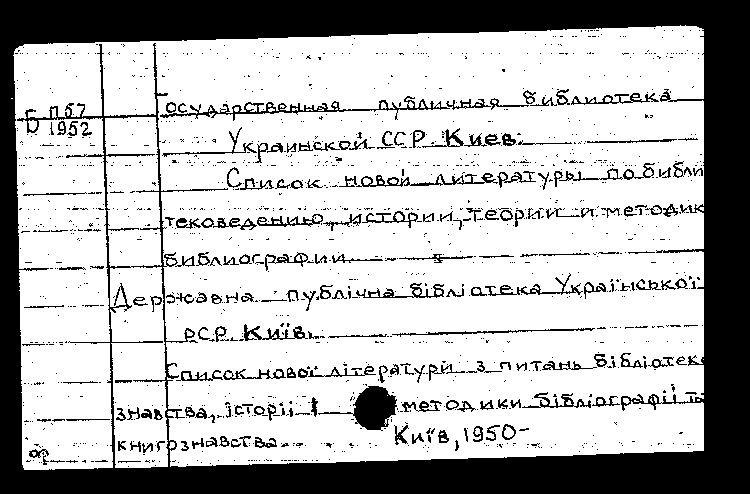 Б П57
1952
Государственная публичная библиотека
Украинской ССР. Киев.
Список новой литературы по библи
тековедению, истории, теории и методик
библиографии
Державна публічна бібліотека Української
РСР. Київ.
Список нової літератури з питань бібліотеко
знавства, історії і методики бібліографії та
книгознавства.
Київ, 1950-